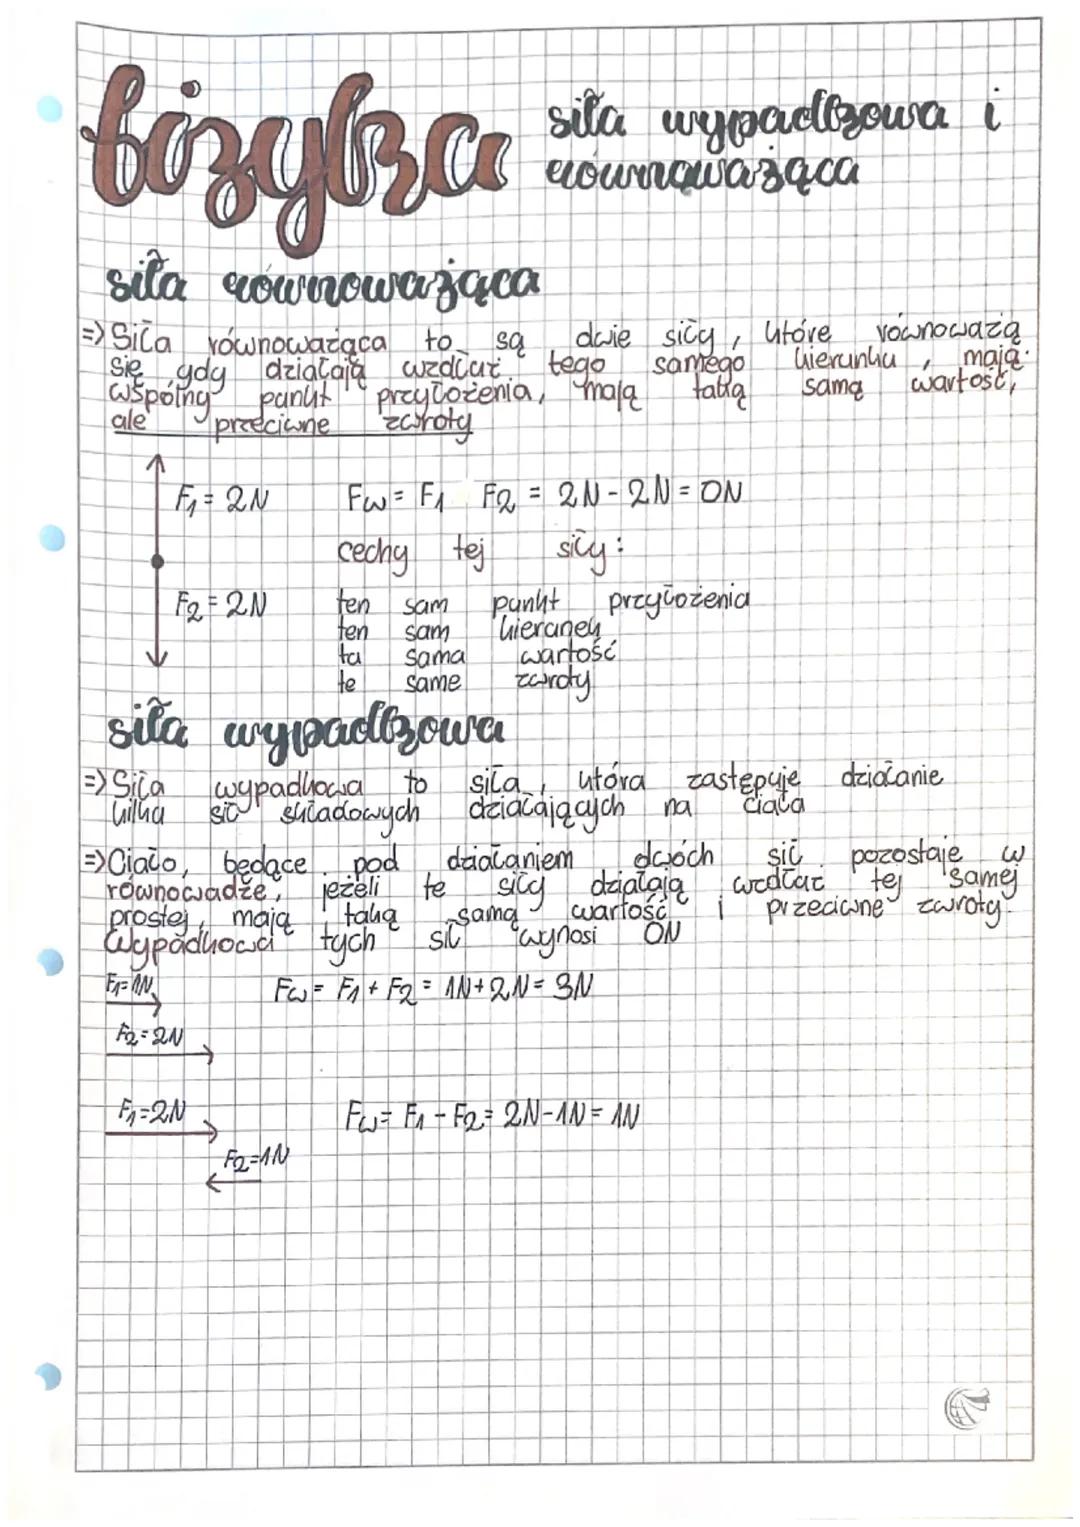 fizyka
siła wypadkowa i
równoważąca
siła równoważąca
=> Siła równoważąca to są dwie siły, które równoważą
się gdy działają wzdłuż tego samego kierunku, mają
wspólny punkt przyłożenia, mają taką samą wartość,
ale przeciwne zwroty
F₁ = 2N
Fw = F₁ F₂ = 2N - 2N = 0N
cechy tej siły:
F₂ = 2N
ten sam punkt przyłożenia
ten sam kieruney
ta sama wartość
te same zwroty
siła wypadkowa
=> Siła wypadkowa to siła, która zastępuje działanie
kilka sił składowych działających na ciała
=> Ciało, będące pod działaniem dwóch sił pozostaje w
równowadze, jeżeli te siły działają wzdłuż tej samej
prostej, mają taką samą wartość i przeciwne zwroty.
Wypadkowa tych sił wynosi 0N
F₁=1N
Fw = F₁ + F₂ = 1N + 2N = 3N
F₂=2N
F₁=2N
Fw = F₁ - F₂ = 2N - 1N = 1N
F₂=1N